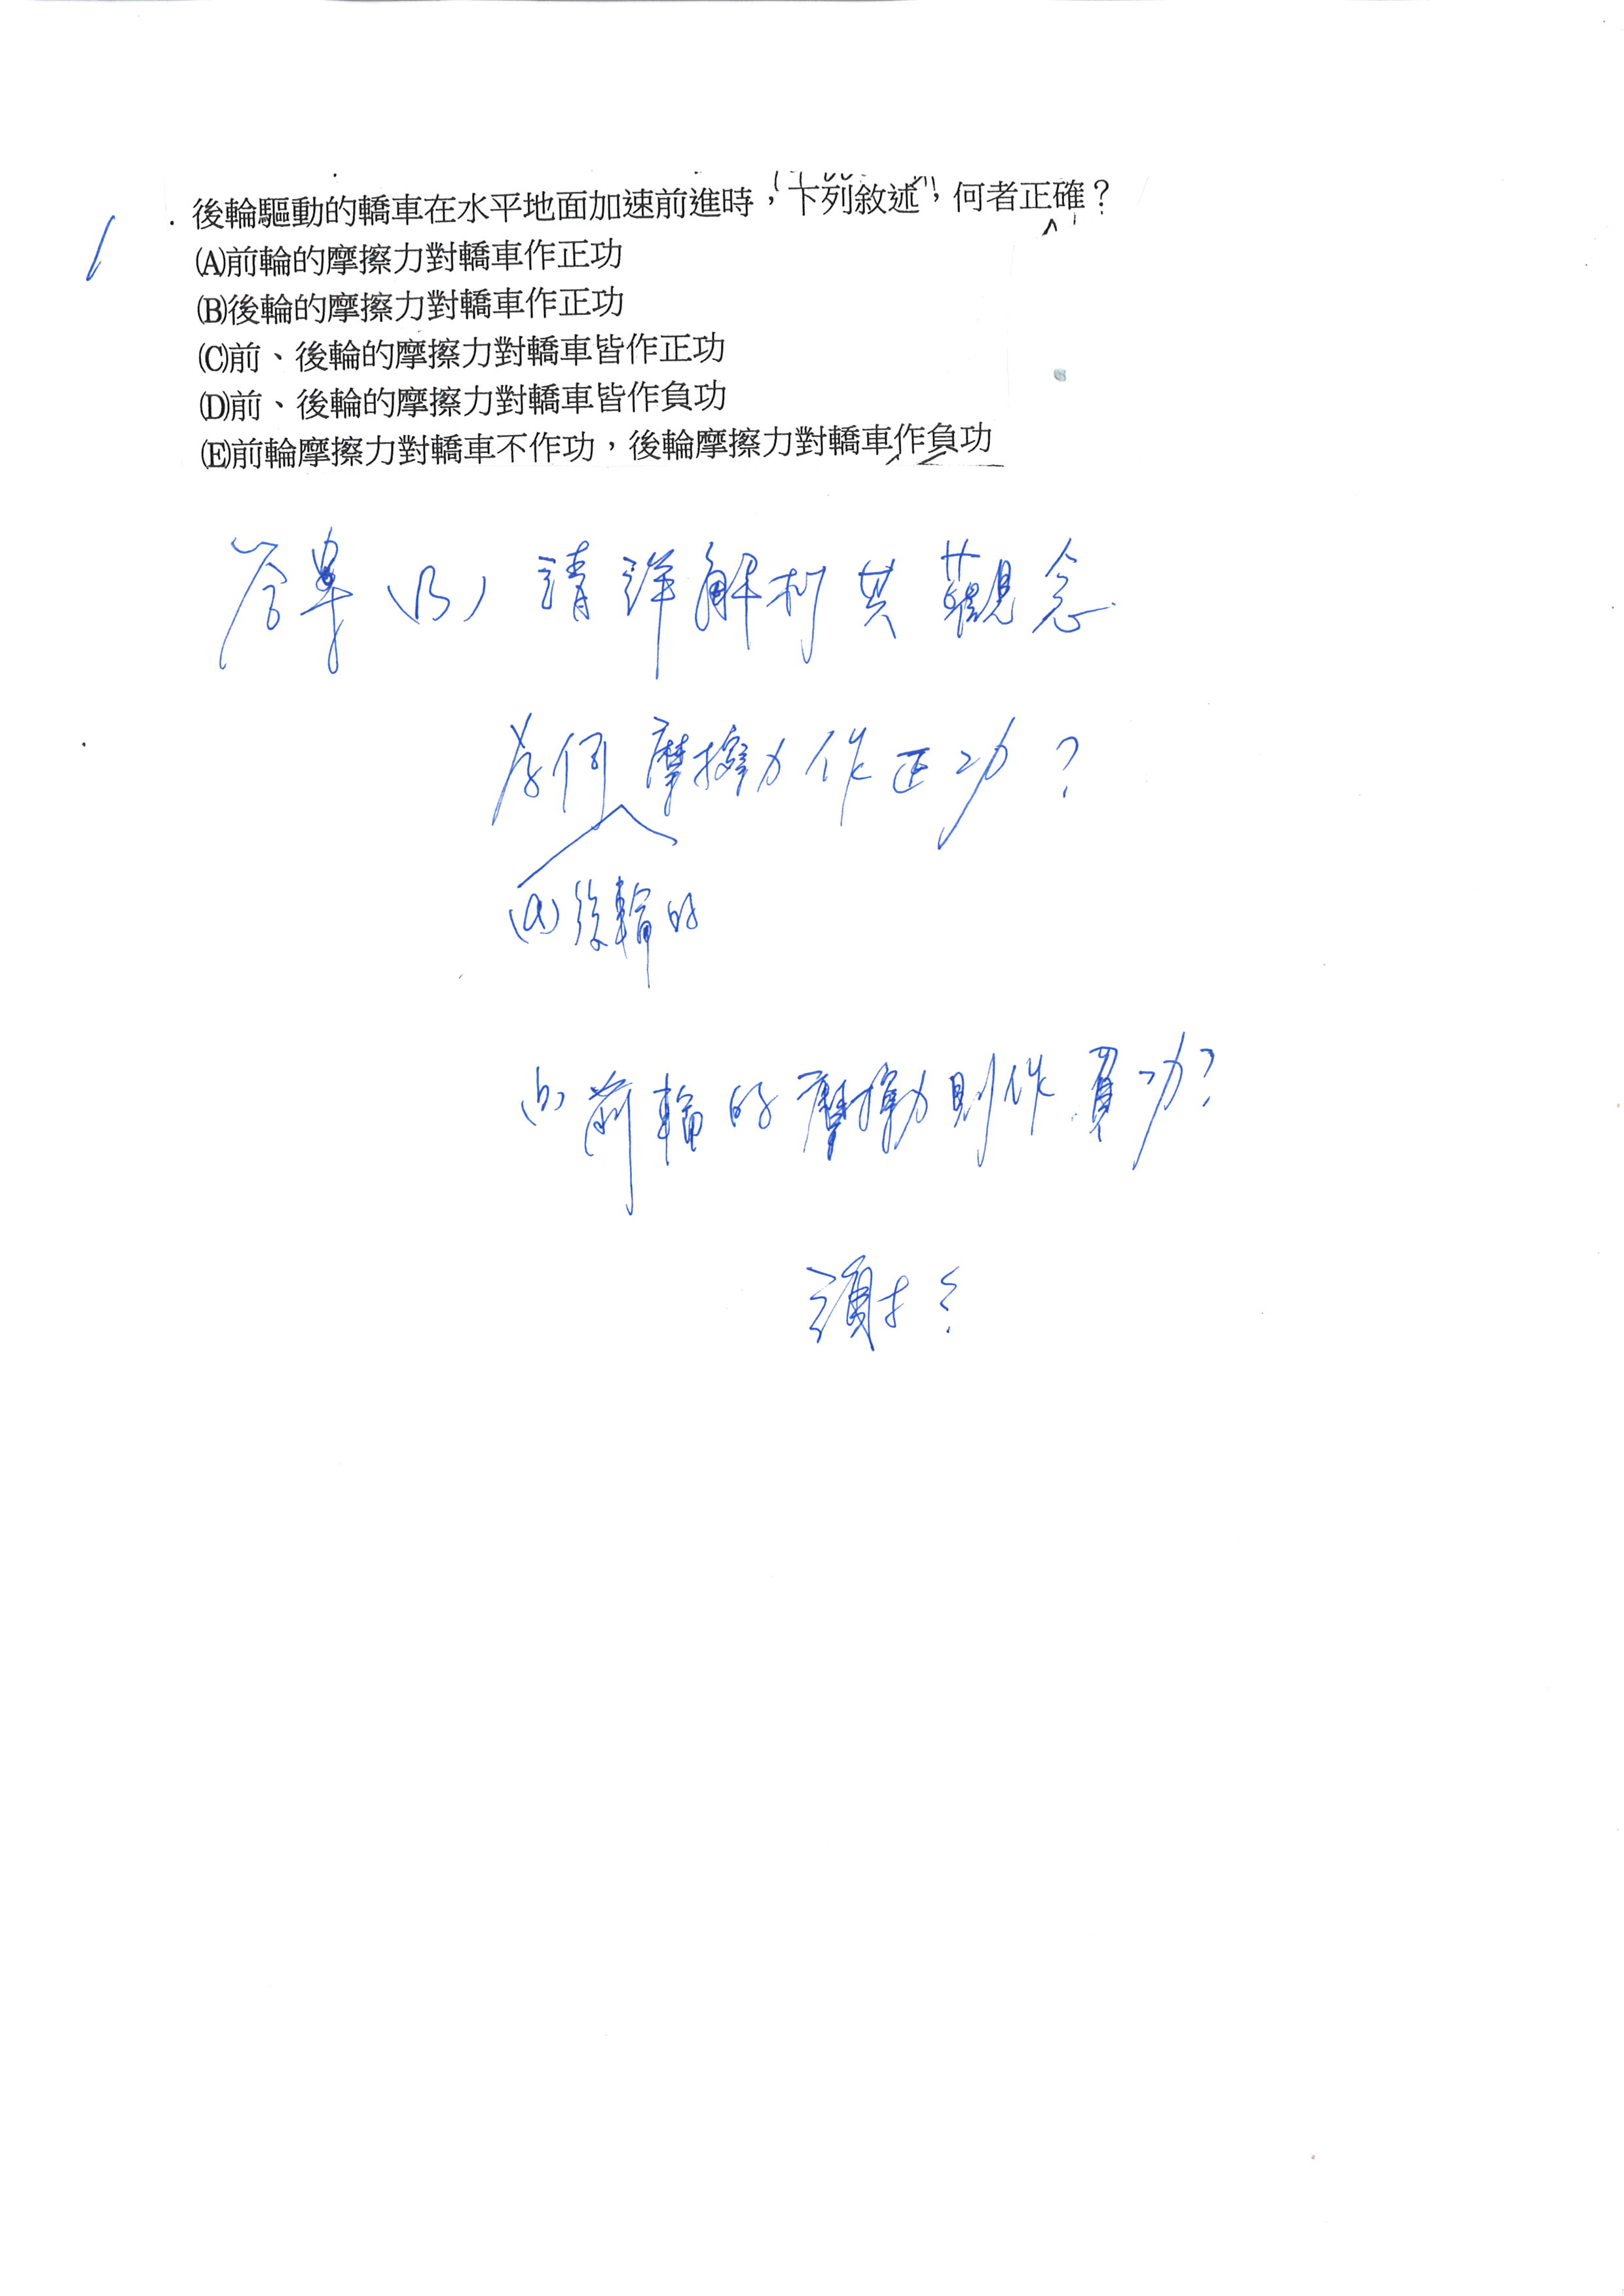 1
. 後輪驅動的轎車在水平地面加速前進時，下列敘述，何者正確？
(A)前輪的摩擦力對轎車作正功
(B)後輪的摩擦力對轎車作正功
(C)前、後輪的摩擦力對轎車皆作正功
(D)前、後輪的摩擦力對轎車皆作負功
(E)前輪摩擦力對轎車不作功，後輪摩擦力對轎車作負功
答案(B) 請詳解析其觀念
為何摩擦力作正功？
(a)後輪的
(b)前輪的摩擦力則作負功？
謝謝